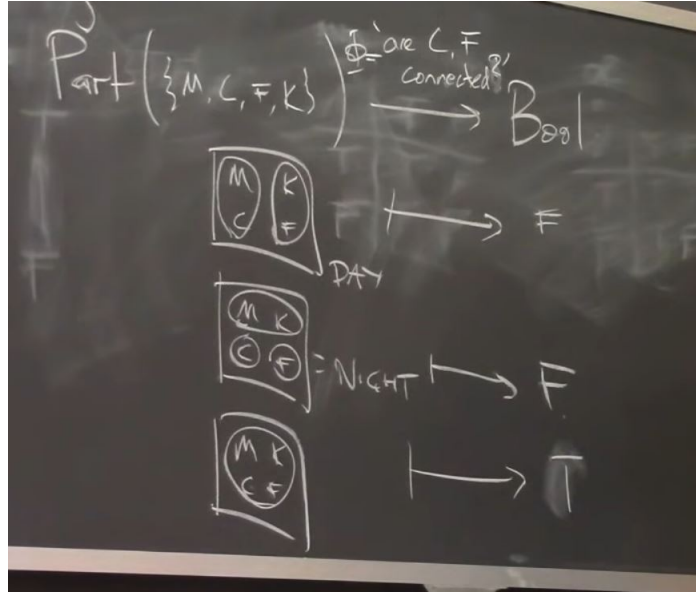 Part({M, C, F, K}) Φ= 'are C, F connected?' → Bool
M K
C F
DAY
↦ F
M K
C F
= NIGHT ↦ F
M K
C F
↦ T